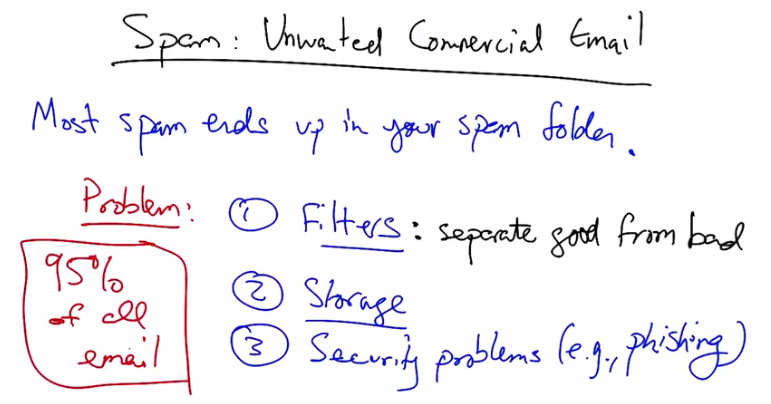 Spam: Unwated Commercial Email
Most spam ends up in your spam folder.
Problem: ① Filters: separate good from bad
95% of all email
② Storage
③ Security problems (e.g., phishing)